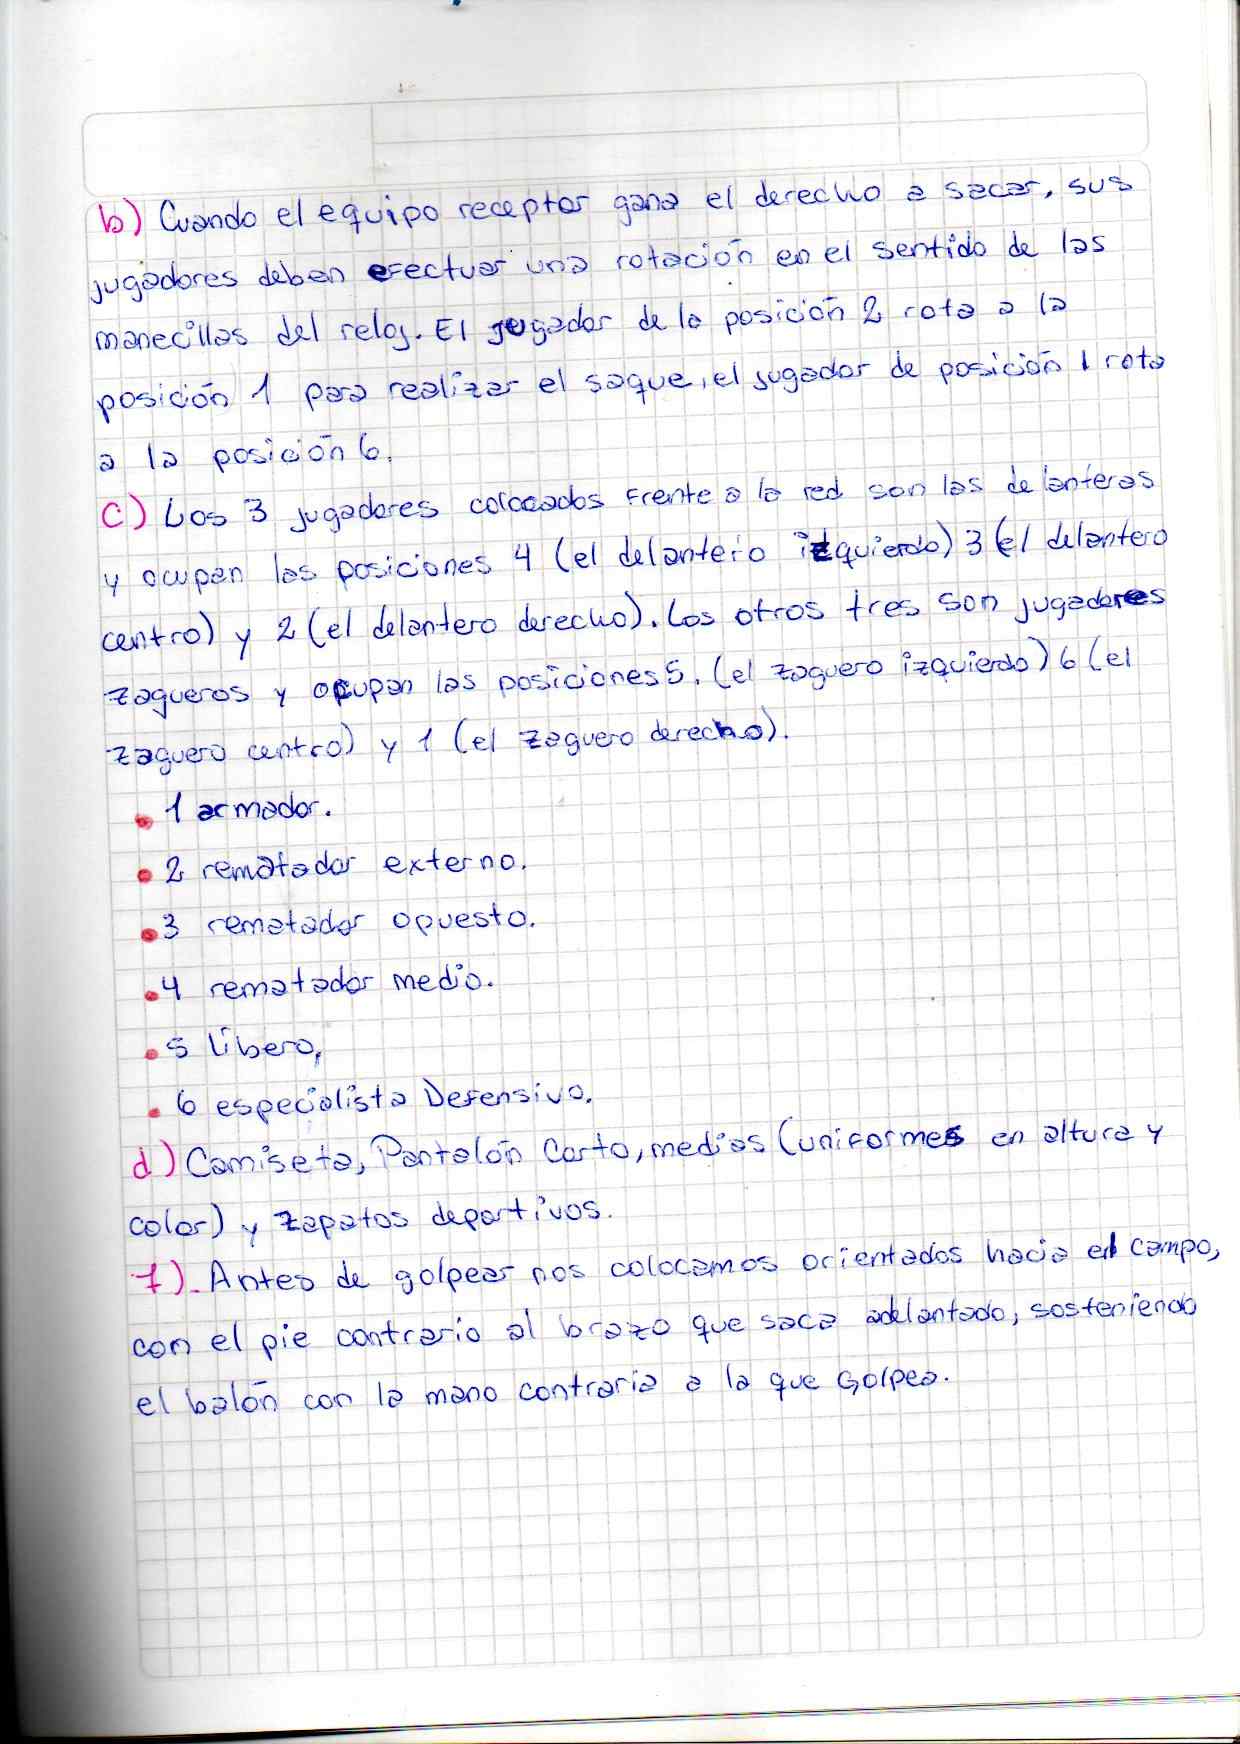 b) Cuando el equipo receptor gana el derecho a sacar, sus
jugadores deben efectuar una rotación en el sentido de las
manecillas del reloj. El jugador de la posición 2 rota a la
posición 1 para realizar el saque, el jugador de posición 1 rota
a la posición 6.
C) Los 3 jugadores colocados frente a la red son las delanteras
y ocupan las posiciones 4 (el delantero izquierdo) 3 (el delantero
centro) y 2 (el delantero derecho). Los otros tres son jugadores
zagueros y ocupan las posiciones 5, (el zaguero izquierdo) 6 (el
zaguero centro) y 1 (el zaguero derecho).
• 1 armador.
• 2 rematador externo.
• 3 rematador opuesto.
• 4 rematador medio.
• 5 Líbero,
• 6 especialista Defensivo.
d) Camiseta, Pantalón Corto, medias (uniformes en altura y
color) y zapatos deportivos.
7). Antes de golpear nos colocamos orientados hacia el campo,
con el pie contrario al brazo que saca adelantado, sosteniendo
el balón con la mano contraria a la que Golpea.